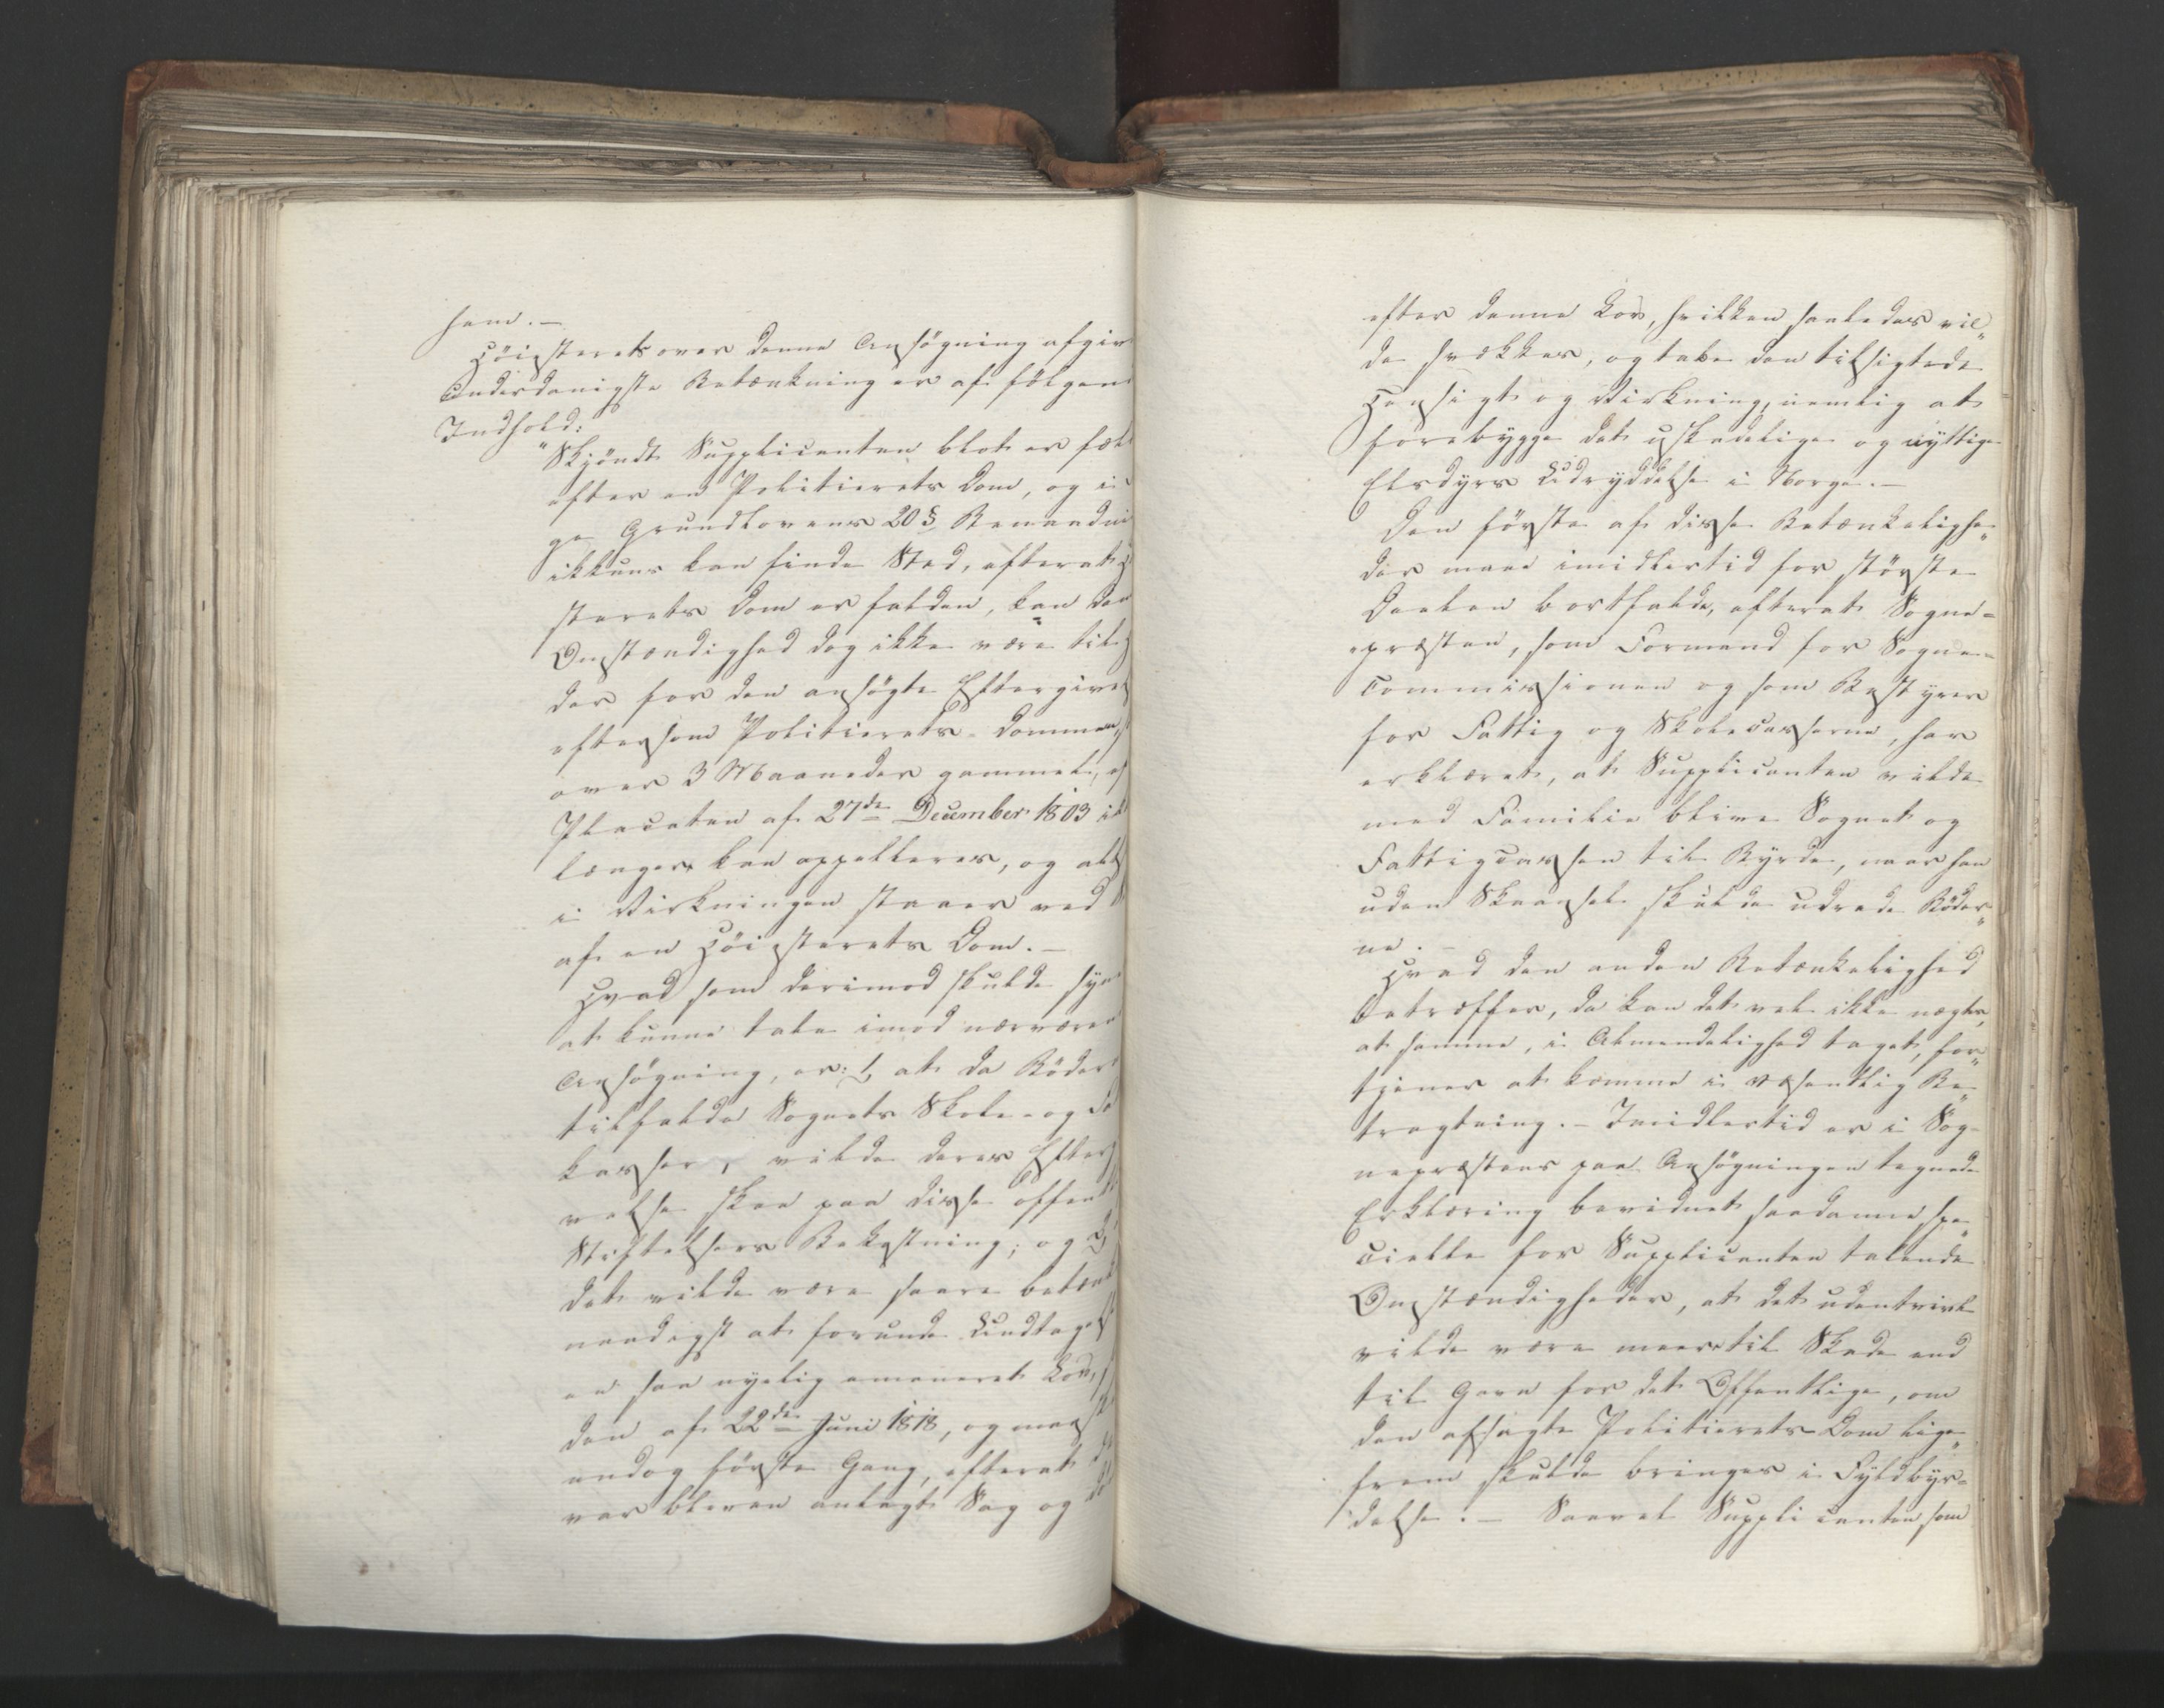 ham. —
Höiesterets over denne Ansögning afgiv
underdanigste Betænkning er af fölgen
Indhold:
"Skjöndt Supplicanten blot er fæl
efter en Politierets Dom, og i
ge Grundlovens 20 § Benaadni
ikkuns kan finde Sted, efterat H
sterets Dom er falden, kan den
Omstændighed dog ikke være til
der for den ansögte Eftergivel
eftersom Politierets-Dommen,
over 3 Maaneder gammel, ef
Placaten af 27de December 1803 ik
længer kan appelleres, og alt
i Virkningen staaer ved
af en Höiesterets Dom. —
Hvad som derimod skulde syn
at kunne tale imod nærværen
Ansögning, er: 1, at da Böder
tilfalde Sognets Skole- og Fa
kasser, vilde deres Efterg
velse skee paa disse offentl
Stiftelsers Bekostning; og 2,
det vilde være saare betænk
naadigst at forunde Undtagels
en saa nyelig emaneret Lov,
den af 22de Juni 1818, og maas
endog förste Gang, efterat d
var bleven anlagt Sag og
efter denne Lov, hvilken saaledes vil„
de svækkes, og tabe den tilsigtede
Hensigt og Virkning, nemlig at
forebygge det uskadelige og nyttige
Elsdyrs Udryddelse i Norge. —
Den förste af disse Betænkelighe„
der maae imidlertid for störste
Deelen bortfalde, efterat Sogne=
præsten, som Formand for Sogne=
Commissionen og som Bestyrer
for Fattig og Skolecasserne, har
erklæret, at Supplicanten vilde
med Familie blive Sognet og
Fattigcassen til Byrde, naar han
uden Skaansel skulde udrede Böder„
ne. —
Hvad den anden Betænkelighed
betræffer, da kan det vel ikke nægtes,
at samme, i Almindelighed taget, for„
tjener at komme i væsentlig Be„
tragtning. — Imidlertid er i Sog-
nepræstens paa Ansögningen tegnede
Erklæring bevidnet saadanne spe„
cielle for Supplicanten talende
Omstændigheder, at det udentvivl
vilde være meer til Skade end
til Gavn for det Offentlige, om
den afsagte Politierets Dom lige„
frem skulde bringes i Fyldbyr=
delse. — Saavel Supplicanten, som